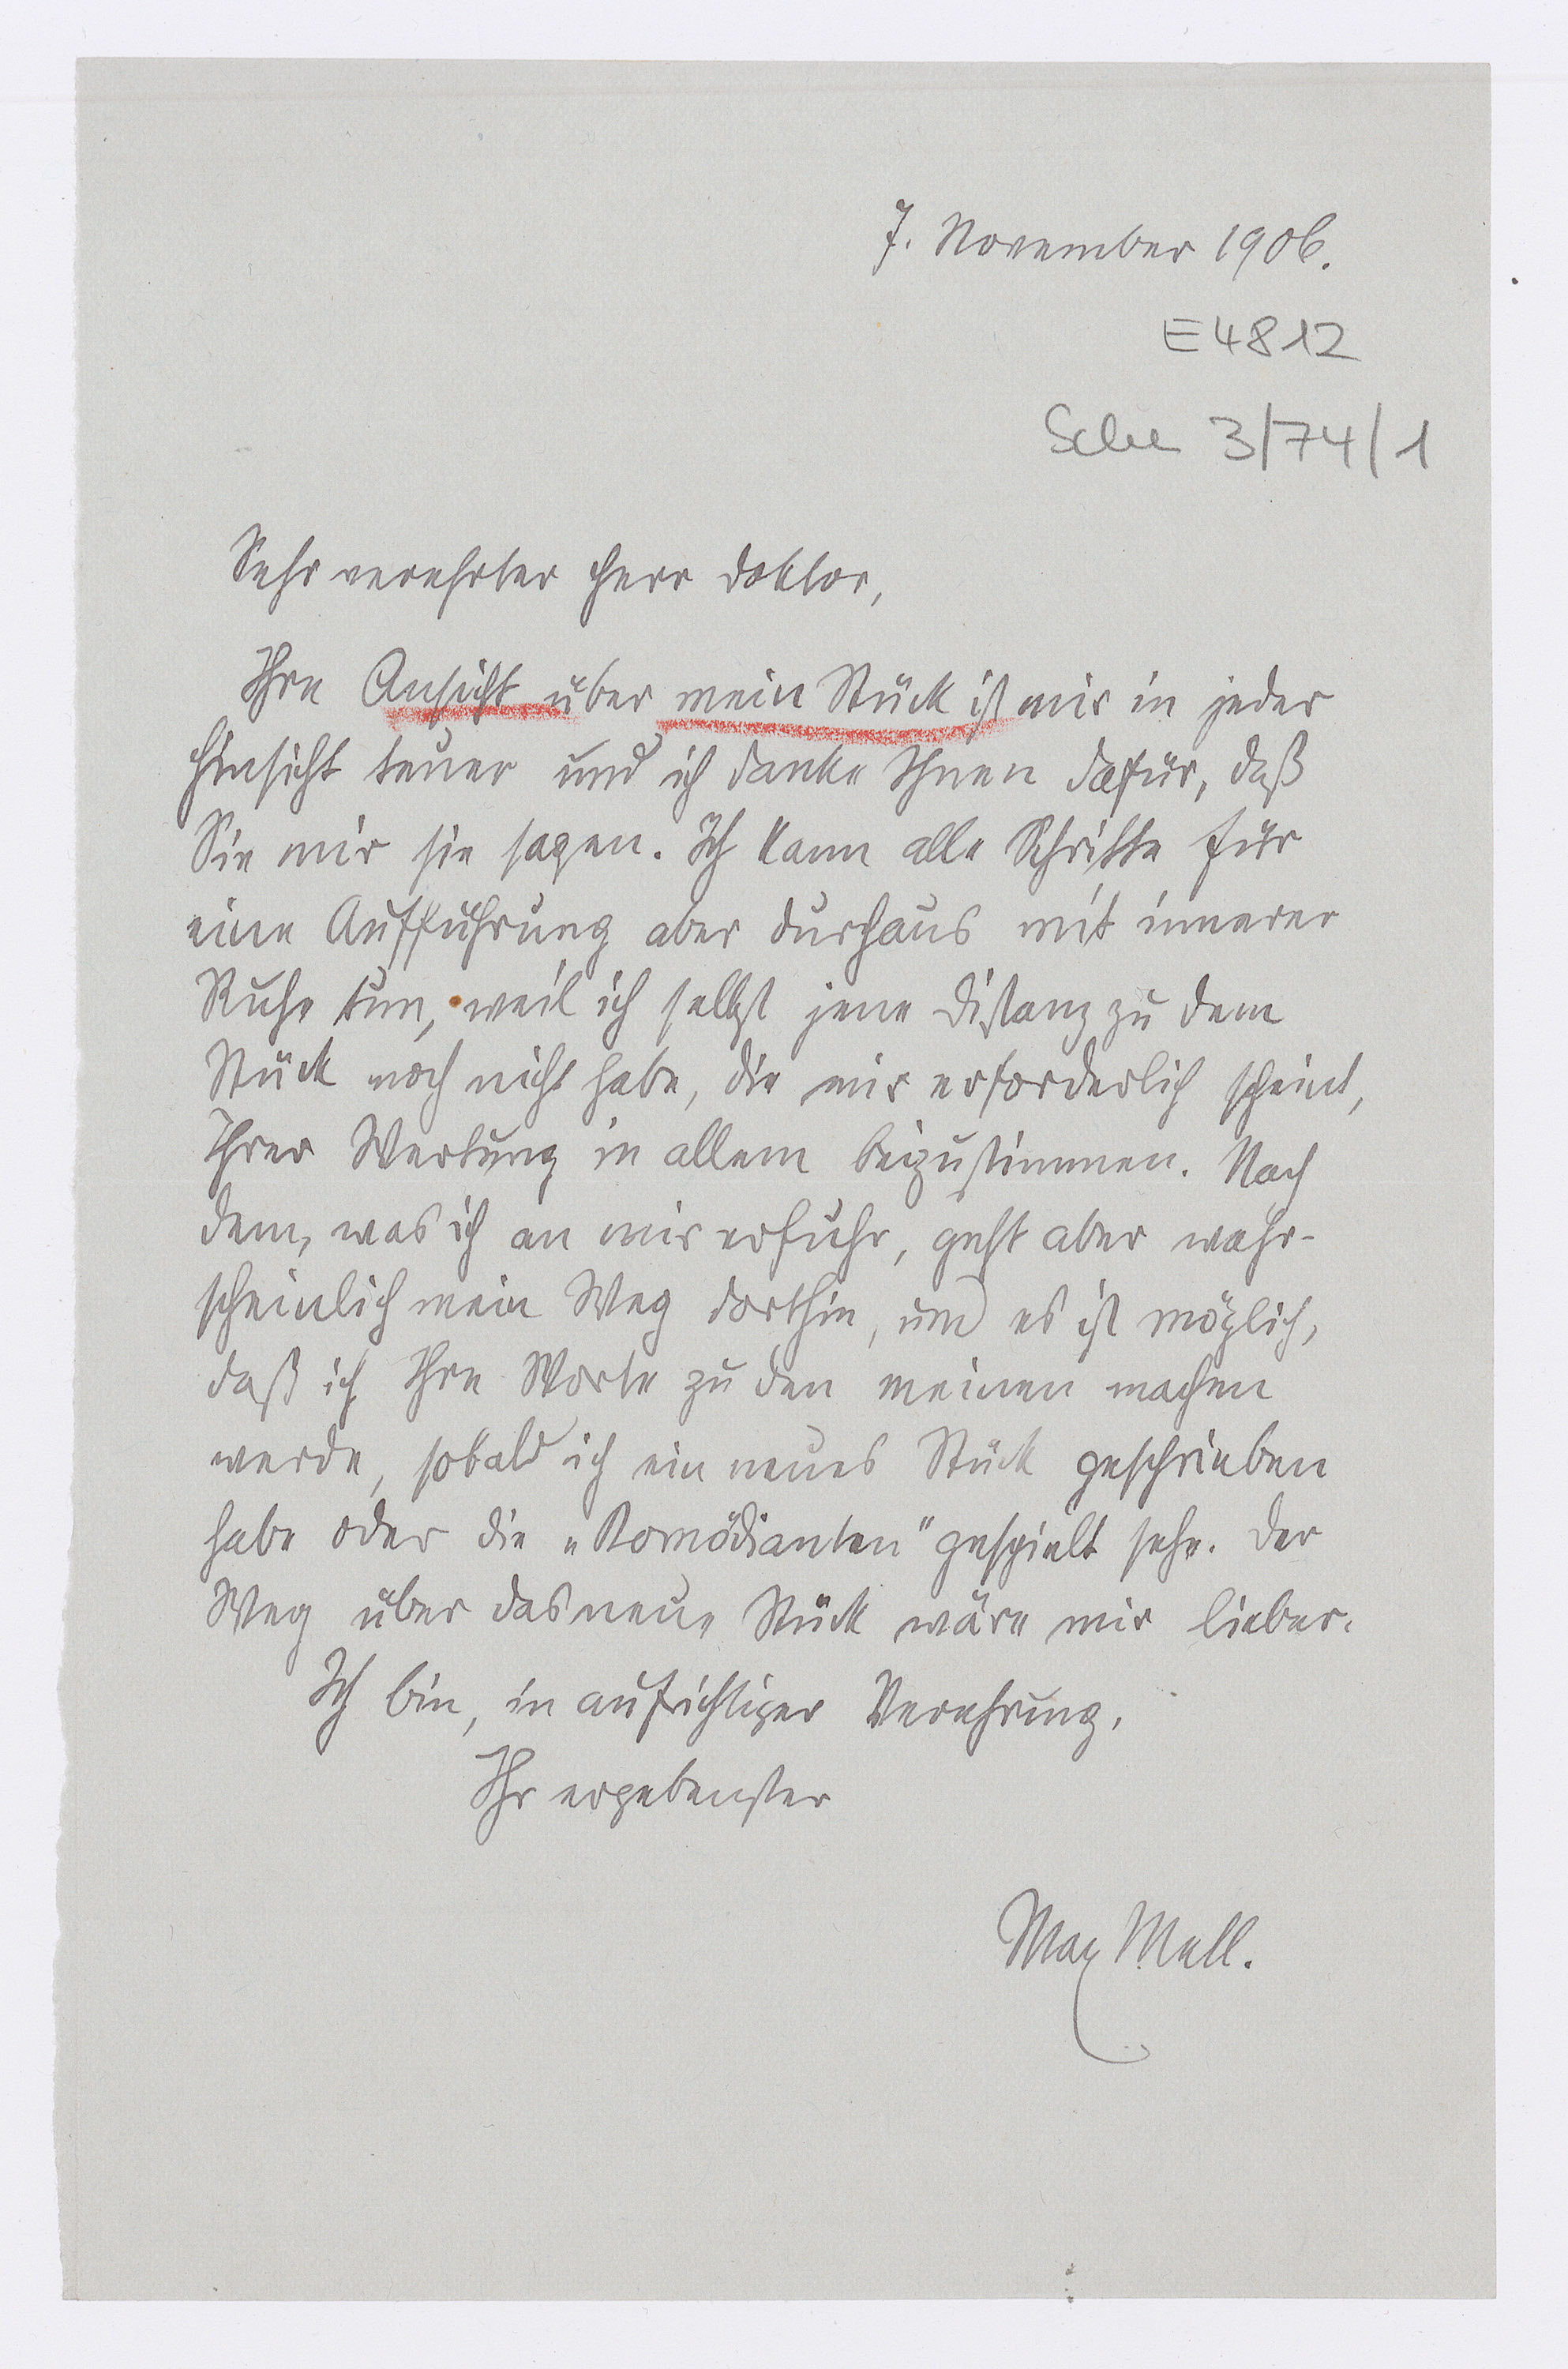 7. November 1906.
E4812
Sche 3/74/1
Sehr verehrter Herr Doktor,
Ihre Ansicht über mein Stück ist mir in jeder
Hinsicht teuer und ich danke Ihnen dafür, daß
Sie mir sie sagen. Ich kann alle Schritte für
eine Aufführung aber durchaus mit innerer
Ruhe tun, weil ich selbst jene Distanz zu dem
Stück noch nicht habe, die mir erforderlich scheint,
Ihrer Wertung in allem beizustimmen. Nach
dem, was ich an mir erfuhr, geht aber wahr-
scheinlich mein Weg dorthin, und es ist möglich,
daß ich Ihre Worte zu den meinen machen
werde, sobald ich ein neues Stück geschrieben
habe oder die „Komödianten" gespielt sehe. Der
Weg über das neue Stück wäre mir lieber.
Ich bin, in aufrichtiger Verehrung,
Ihr ergebenster
Max Mell.